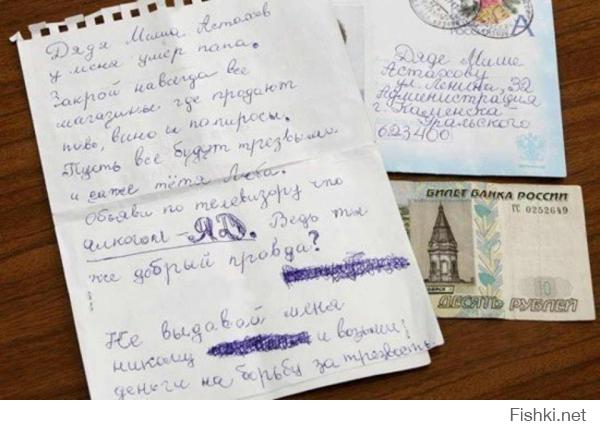 Дядя Миша Астахов
у меня умер папа.
Закрой навсегда все
магазины где продают
пиво, вино и папиросы.
Пусть все будут трезвыми
и даже тётя Люба.
Объяви по телевизору что
алкоголь - ЯД. Ведь ты
же добрый правда?
Не выдавай меня
никому и возьми
деньги на борьбу за трезвость
А
Дяде Мише
Астахову
ул. Ленина, 32
Администрация
г. Каменска
Уральского
623400
БИЛЕТ БАНКА РОССИИ
0252649
10
ДЕСЯТЬ РУБЛЕЙ
Fishki.net